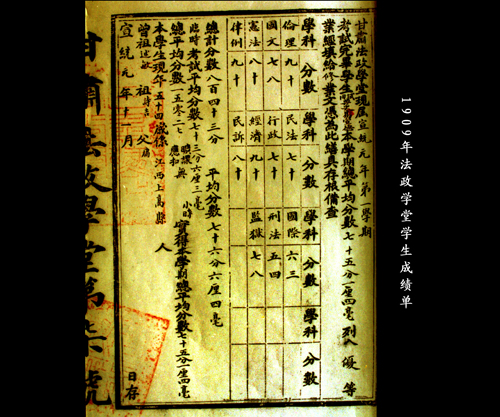 1909年法政学堂学生成绩单
甘肅法政學堂現屆宣統元年第一學期
考試完畢學生 本學期總平均分數七十五分一厘四毫列入優等
業經填給修業文憑為此繕具存根備查
學科 分數 學科 分數 學科 分數 學科 分數
倫理 九十 民法 七十 國際 六三
國文 七八 行政 七十 刑法 五四
憲法 八十 經濟 九十 監獄 七八
律例 九十 民訴 八十
總計分數八百四十三分 平均分數七十六分六厘四毫
臨時考試平均分數七十三分六厘三毫
總平均分數一五〇二七 實得本學期總平均分數七十五分一厘四毫
本學生現年五十四歲係江西上高縣 人
曾祖 祖 父
宣統元年十 月 日存
甘肅法政學堂第 號